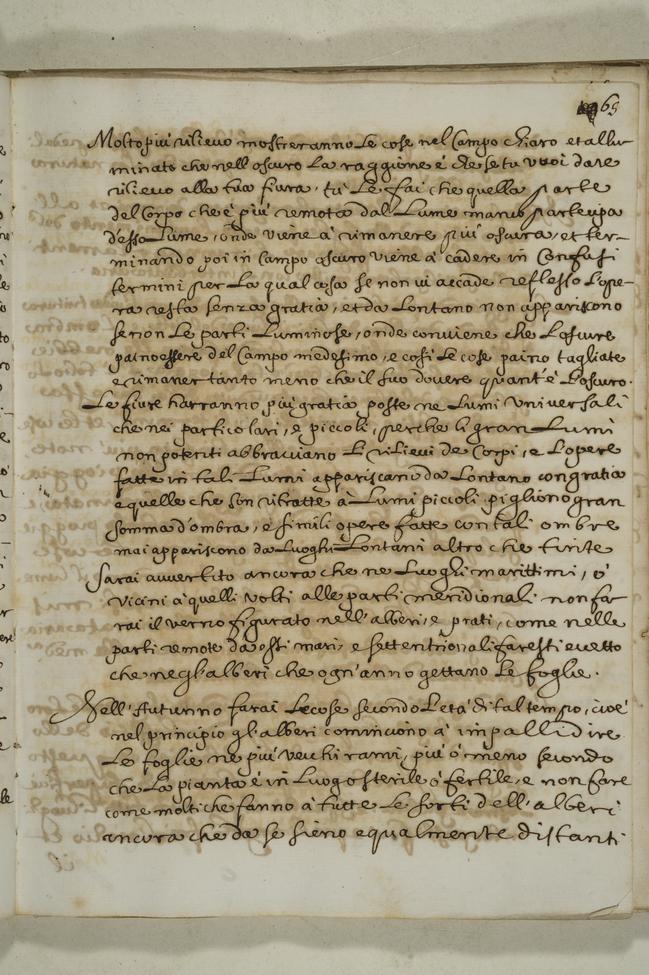 69
Molto più rilievo mostreranno Le cose nel Campo chiaro et allu-
minato che nell oscuro La raggione è che se tu vuoi dare
rilievo alla tua fiura, tù Le fai che quella parte
del Corpo che è più remota dal Lume manco partecipa
d'esso Lume, onde viene à rimanere più oscura, et ter-
minando poi in Campo oscuro viene à cadere in Confusi
termini per La qual cosa se non vi accade reflesso L'ope-
ra resta senza gratia, et da Lontano non appariscono
se non Le parti Luminose, onde conviene che L'oscure
paino essere del Campo medesimo, e così Le cose paino tagliate
e rimaner tanto meno che il suo dovere quant'è L'oscuro.
Le fiure harranno più gratia poste ne Lumi Universali
che nei particolari, e piccoli, perche li gran Lumi
non potenti abbracciano Li rilievi de Corpi, e L'opere
fatte in tali Lumi appariscano da Lontano con gratia
e quelle che son ritratte à Lumi piccoli pigliono gran
somma d'ombra, e simili opere fatte con tali ombre
mai appariscono da Luoghi Lontani altro che tinte
Sarai avvertito ancora che ne Luoghi marittimi, ò
vicini à quelli volti alle parti meridionali non fa-
rai il verno figurato nell'alberi, e prati, come nelle
parti remote da essi mari, e settentrionali faresti eccetto
che negl'alberi che ogn'anno gettano Le foglie.
Nell'Autunno farai Le cose secondo L'età di tal tempo, cioè
nel principio gl'alberi cominciono à impallidire
Le foglie ne più vecchi rami, più ò meno secondo
che La pianta è in Luogo sterile ò fertile, e non fare
come molti che fanno à tutte Le sorti dell'alberi
ancora che da se sieno equalmente distanti